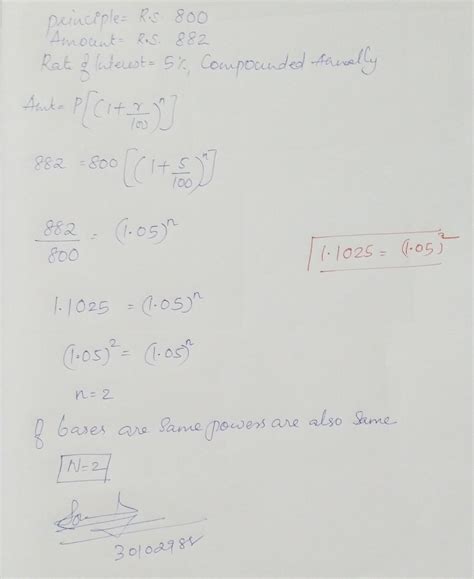 principle= R.S. 800
Amount= R.S. 882
Rate of Interest= 5%, Compounded Annually
Amt= P[(1+r/100)^n]
882 =800[(1+5/100)^n]
882/800 = (1.05)^n
1.1025 = (1.05)^2
1.1025 = (1.05)^n
(1.05)^2 = (1.05)^n
n=2
If bases are Same powers are also Same
N=2